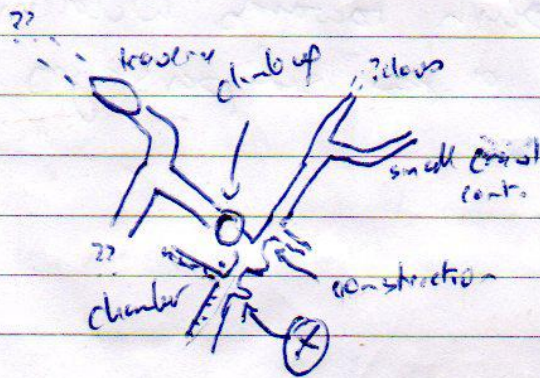 ??
traverse
climb up
?close
small crawl
cont.
??
chamber
constriction
X